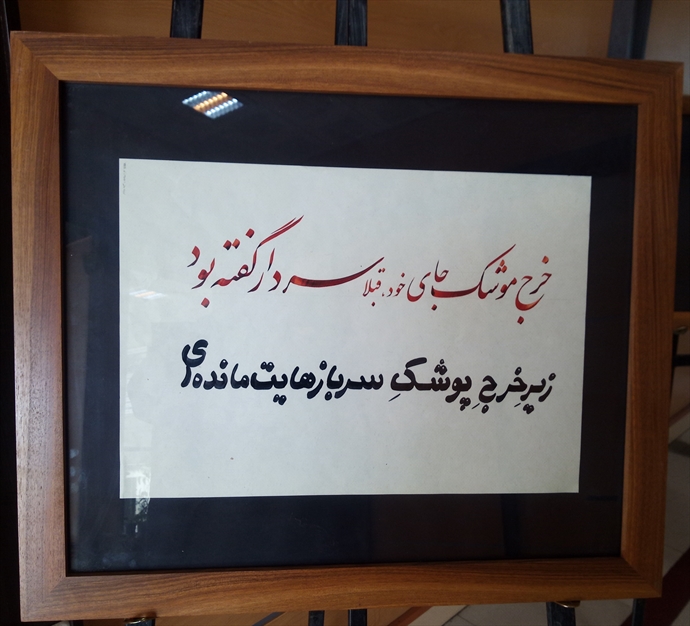 خرج موشک جای خود، قبلا سردار گفته بود
زیرِ خرجِ پوشکِ سربازهایت مانده‌ای